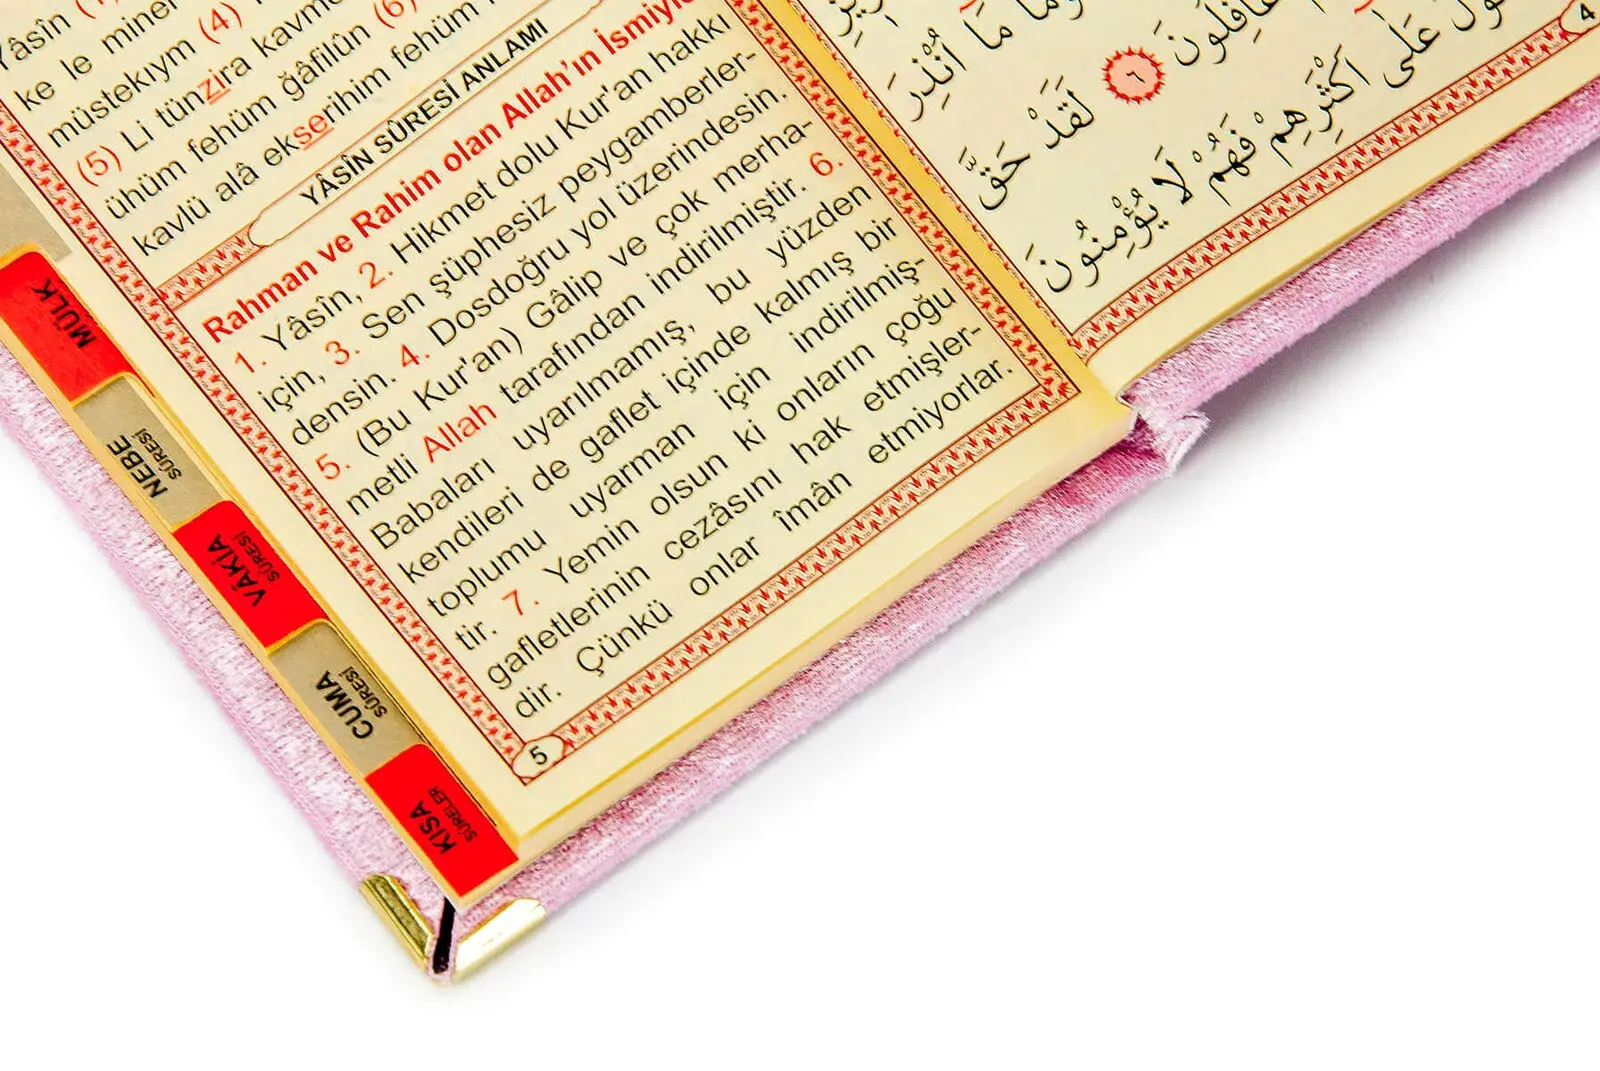 Yâsîn (1)
ke le minel
müstekıym (4)
(5) Li tünzira kavme
ühüm fehüm ğâfilûn (6)
kavlü alâ ekserihim fehüm
YÂSÎN SÛRESİ ANLAMI
Rahman ve Rahim olan Allah'ın İsmiyle
1. Yâsîn, 2. Hikmet dolu Kur'an hakkı
için, 3. Sen şüphesiz peygamberler-
densin. 4. Dosdoğru yol üzerindesin.
5. (Bu Kur'an) Gâlip ve çok merha-
metli Allah tarafından indirilmiştir. 6.
Babaları uyarılmamış, bu yüzden
kendileri de gaflet içinde kalmış bir
toplumu uyarman için indirilmiş-
tir. 7. Yemin olsun ki onların çoğu
gafletlerinin cezâsını hak etmişler-
dir. Çünkü onlar îmân etmiyorlar.
5
MÜLK
NEBE
SÛRESİ
VÂKİA
SÛRESİ
CUMA
SÛRESİ
KISA
SÛRELER
مَا اُنْذِرَ
غَافِلُونَ ٦ لَقَدْ حَقَّ
عَلٰى اَكْثَرِهِمْ فَهُمْ لَا يُؤْمِنُونَ
4